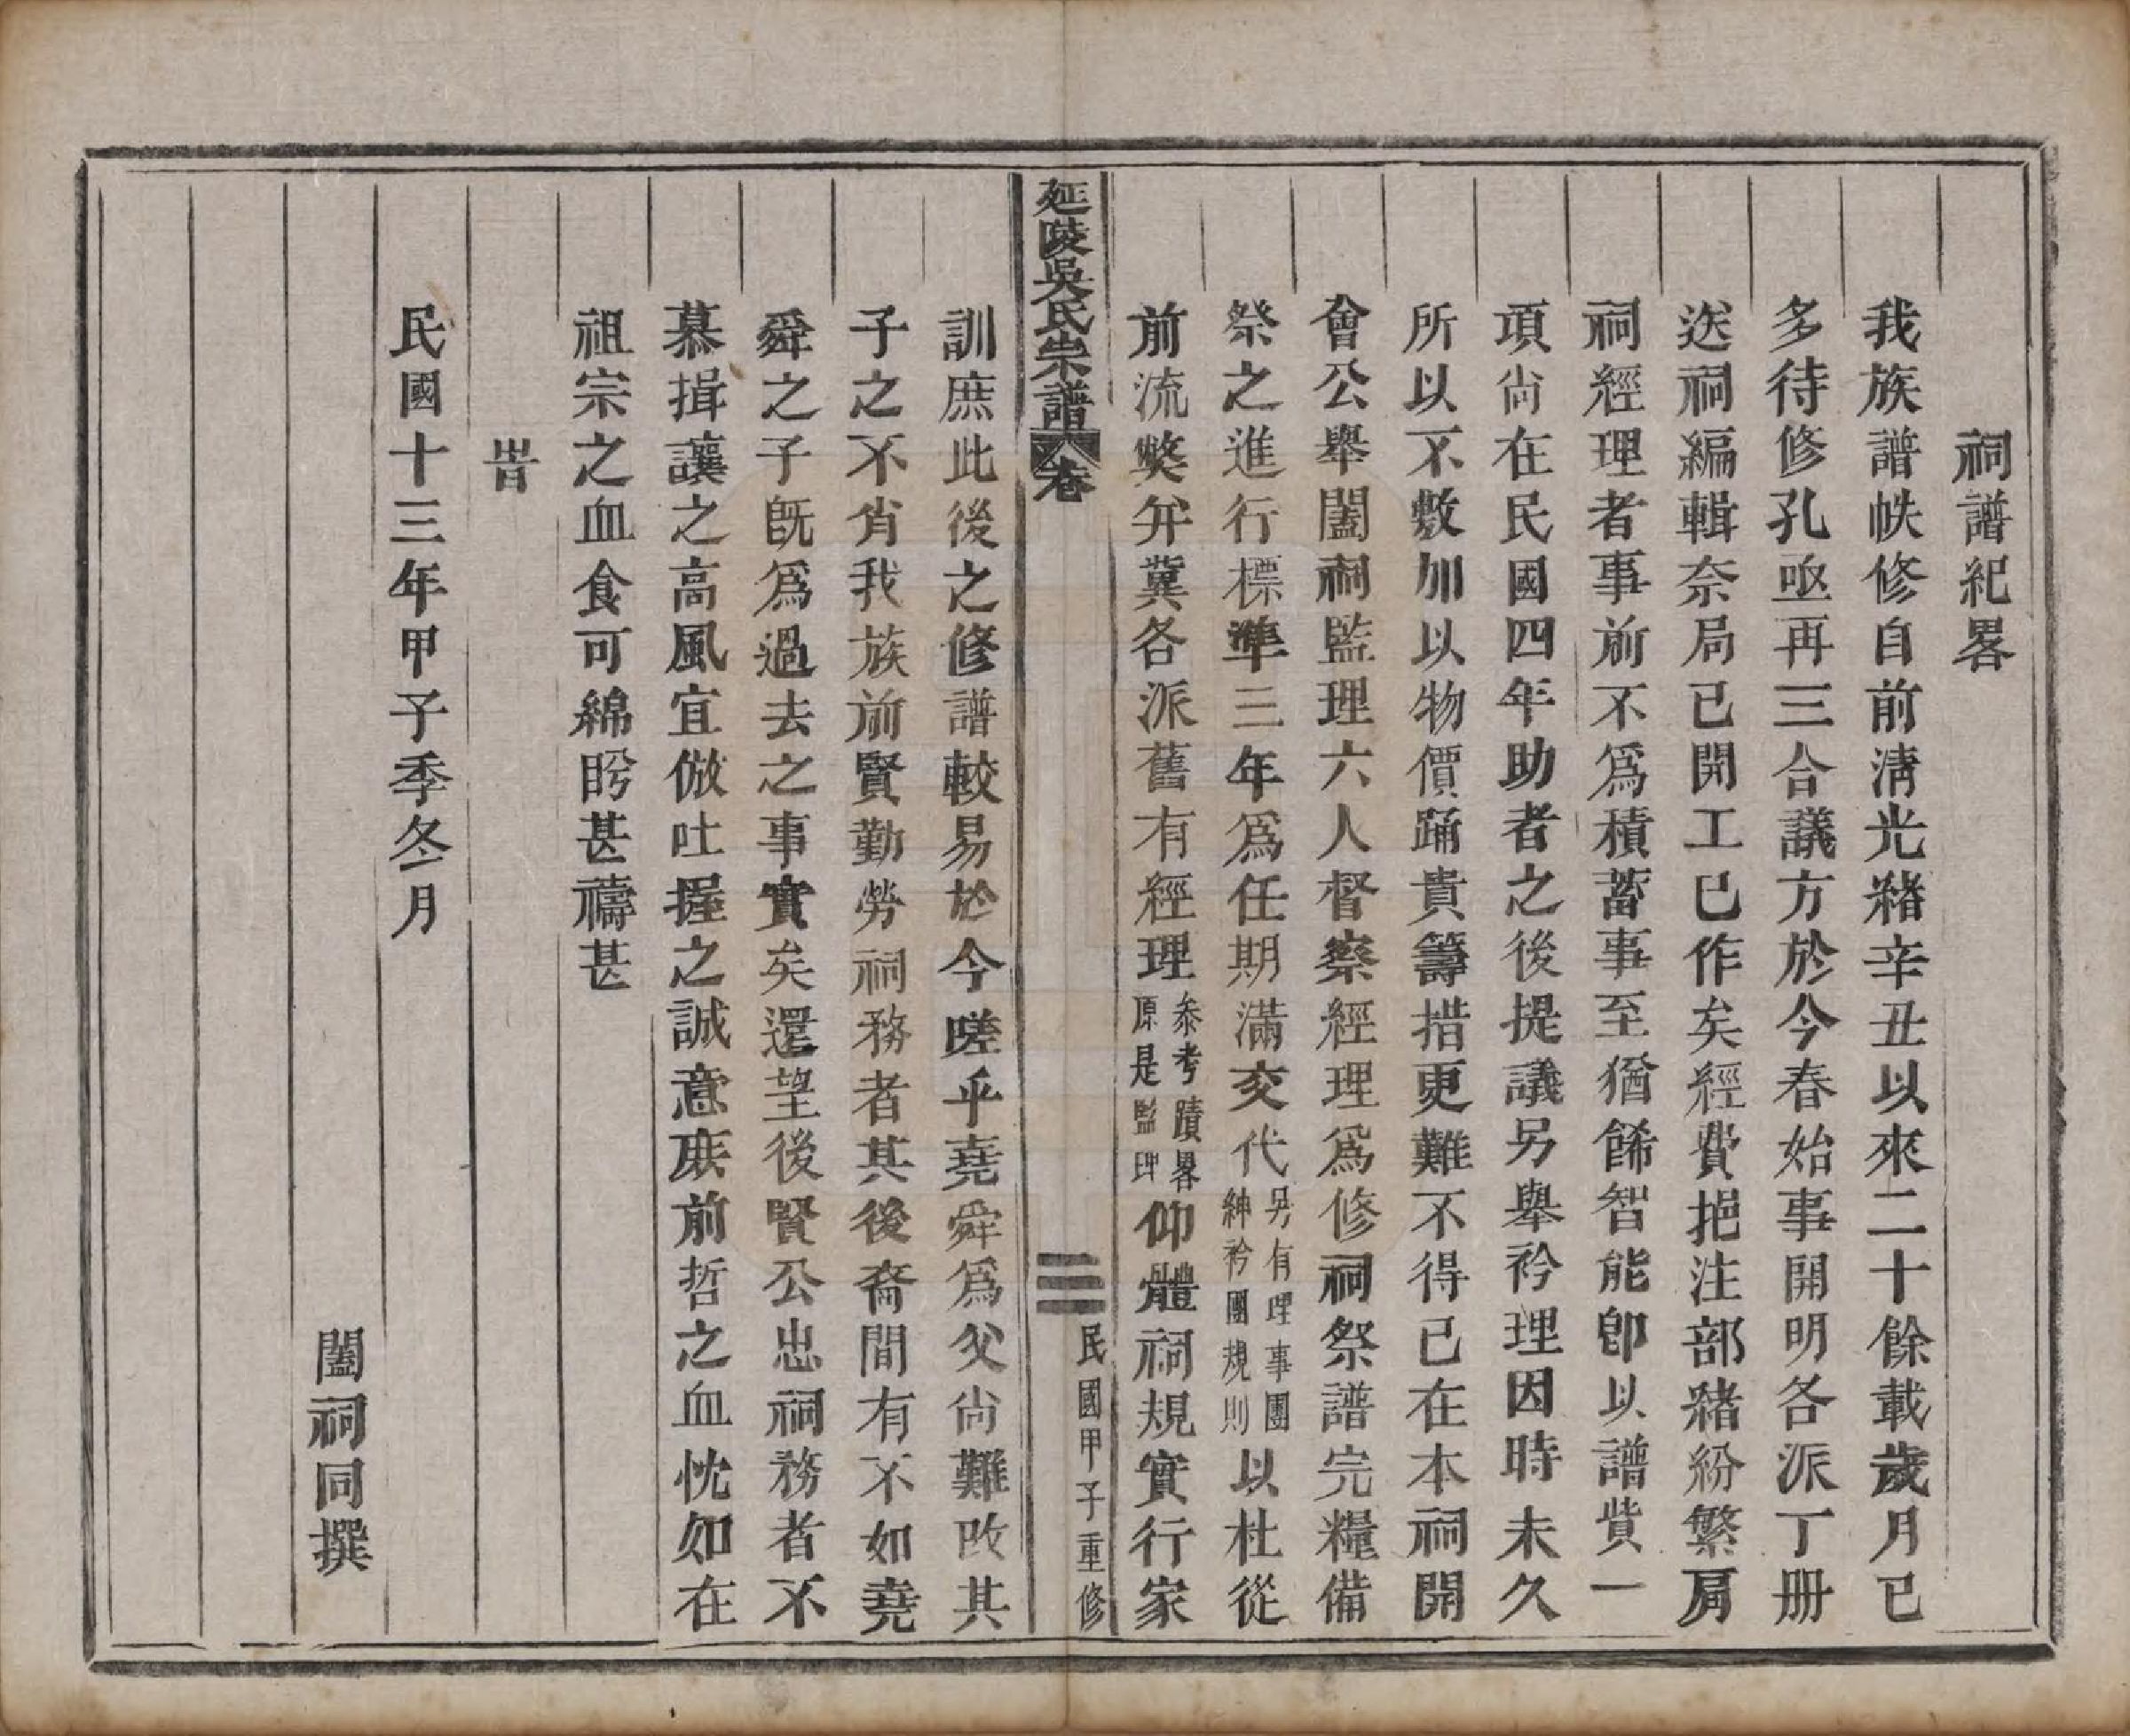 祠譜紀畧
我族譜帙修自前淸光緖辛丑以來二十餘載歲月已
多待修孔亟再三合議方於今春始事開明各派丁册
送祠編輯奈局已開工已作矣經費挹注部緖紛繁肩
祠經理者事前不爲積蓄事至猶餙智能卽以譜貲一
項尙在民國四年助者之後提議另舉衿理因時未久
所以不敷加以物價踊貴籌措更難不得已在本祠開
會公舉闔祠監理六人督察經理爲修祠祭譜完糧備
祭之進行標準三年爲任期滿交代另有理事團紳衿團規則以杜從
前流獘弁冀各派舊有經理叅考蹟畧原是監理仰體祠規實行家
延陵吳氏宗譜 卷 三 民國甲子重修
訓庶此後之修譜較易於今嗟乎堯舜爲父尙難改其
子之不肖我族前賢勤勞祠務者其後裔間有不如堯
舜之子旣爲過去之事實矣還望後賢公忠祠務者不
慕揖讓之高風宜倣吐握之誠意庶前哲之血忱如在
祖宗之血食可綿盼甚禱甚
旹
民國十三年甲子季冬月
闔祠同撰